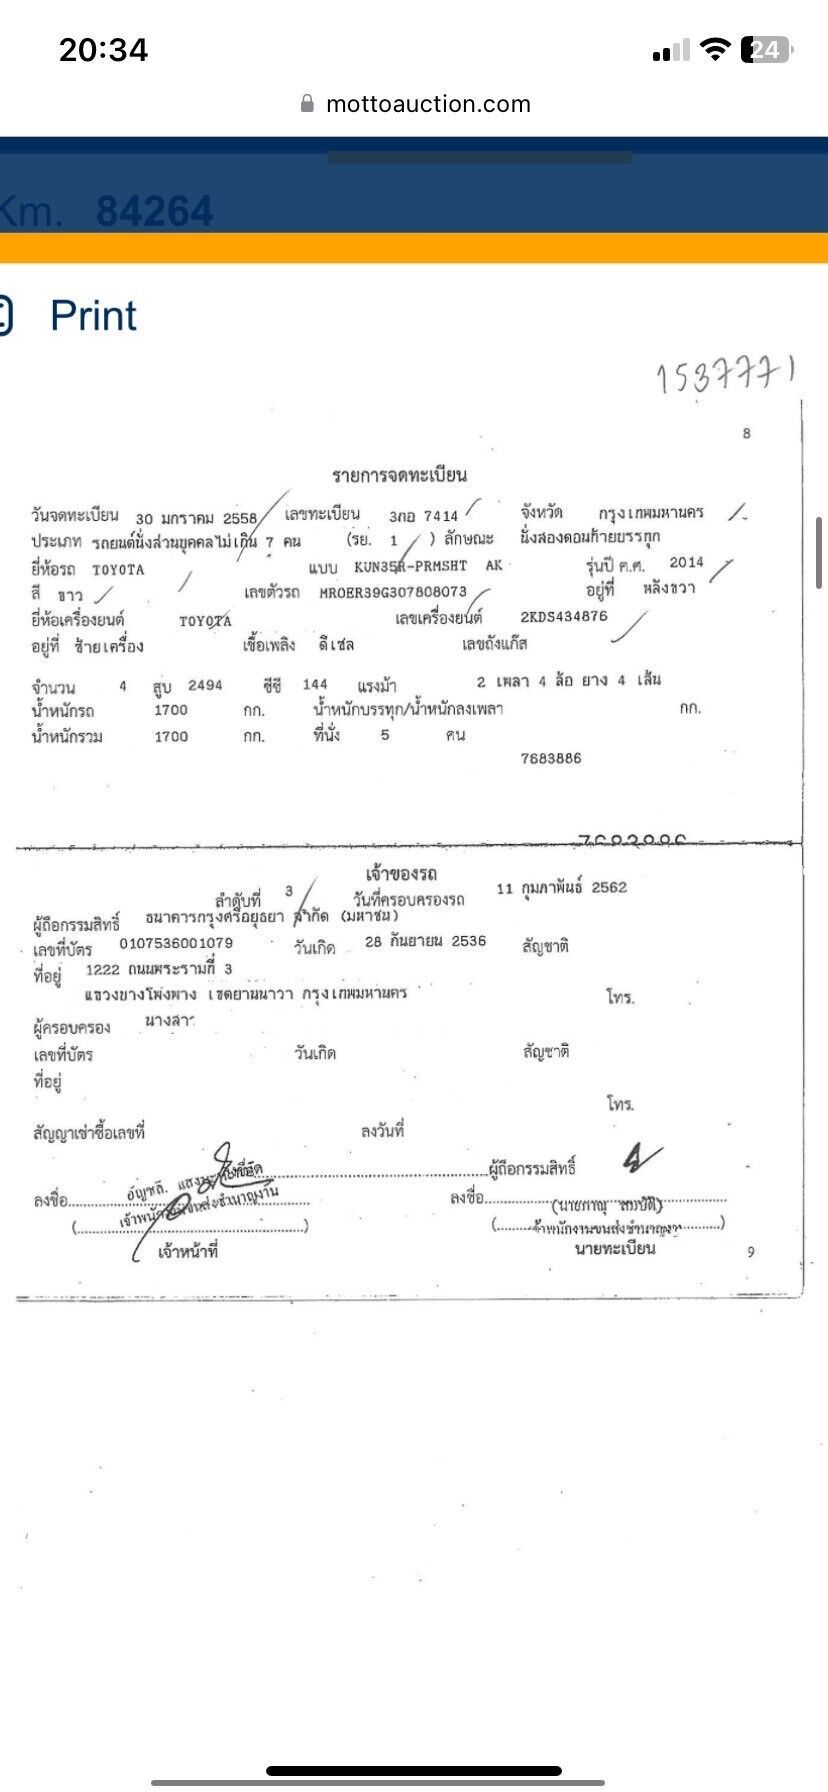 20:34
24
mottoauction.com
Km. 84264
Print
1537771
8
รายการจดทะเบียน
วันจดทะเบียน 30 มกราคม 2558 เลขทะเบียน 3กอ 7414 จังหวัด กรุงเทพมหานคร
ประเภท รถยนต์นั่งส่วนบุคคลไม่เกิน 7 คน (รย. 1 ) ลักษณะ นั่งสองตอนท้ายบรรทุก
ยี่ห้อรถ TOYOTA แบบ KUN35R-PRMSHT AK รุ่นปี ค.ศ. 2014
สี ขาว เลขตัวรถ MROER39G307808073 อยู่ที่ หลังขวา
ยี่ห้อเครื่องยนต์ TOYOTA เลขเครื่องยนต์ 2KDS434876
อยู่ที่ ซ้ายเครื่อง เชื้อเพลิง ดีเซล เลขถังแก๊ส
จำนวน 4 สูบ 2494 ซีซี 144 แรงม้า 2 เพลา 4 ล้อ ยาง 4 เส้น
น้ำหนักรถ 1700 กก. น้ำหนักบรรทุก/น้ำหนักลงเพลา กก.
น้ำหนักรวม 1700 กก. ที่นั่ง 5 คน
7683886
เจ้าของรถ
ลำดับที่ 3 วันที่ครอบครองรถ 11 กุมภาพันธ์ 2562
ผู้ถือกรรมสิทธิ์ ธนาคารกรุงศรีอยุธยา จำกัด (มหาชน)
เลขที่บัตร 0107536001079 วันเกิด 28 กันยายน 2536 สัญชาติ
ที่อยู่ 1222 ถนนพระรามที่ 3
แขวงบางโพงพาง เขตยานนาวา กรุงเทพมหานคร โทร.
ผู้ครอบครอง นางสา
เลขที่บัตร วันเกิด สัญชาติ
ที่อยู่
โทร.
สัญญาเช่าซื้อเลขที่ ลงวันที่
ผู้ถือกรรมสิทธิ์
ลงชื่อ ลงชื่อ
เจ้าหน้าที่ นายทะเบียน
9